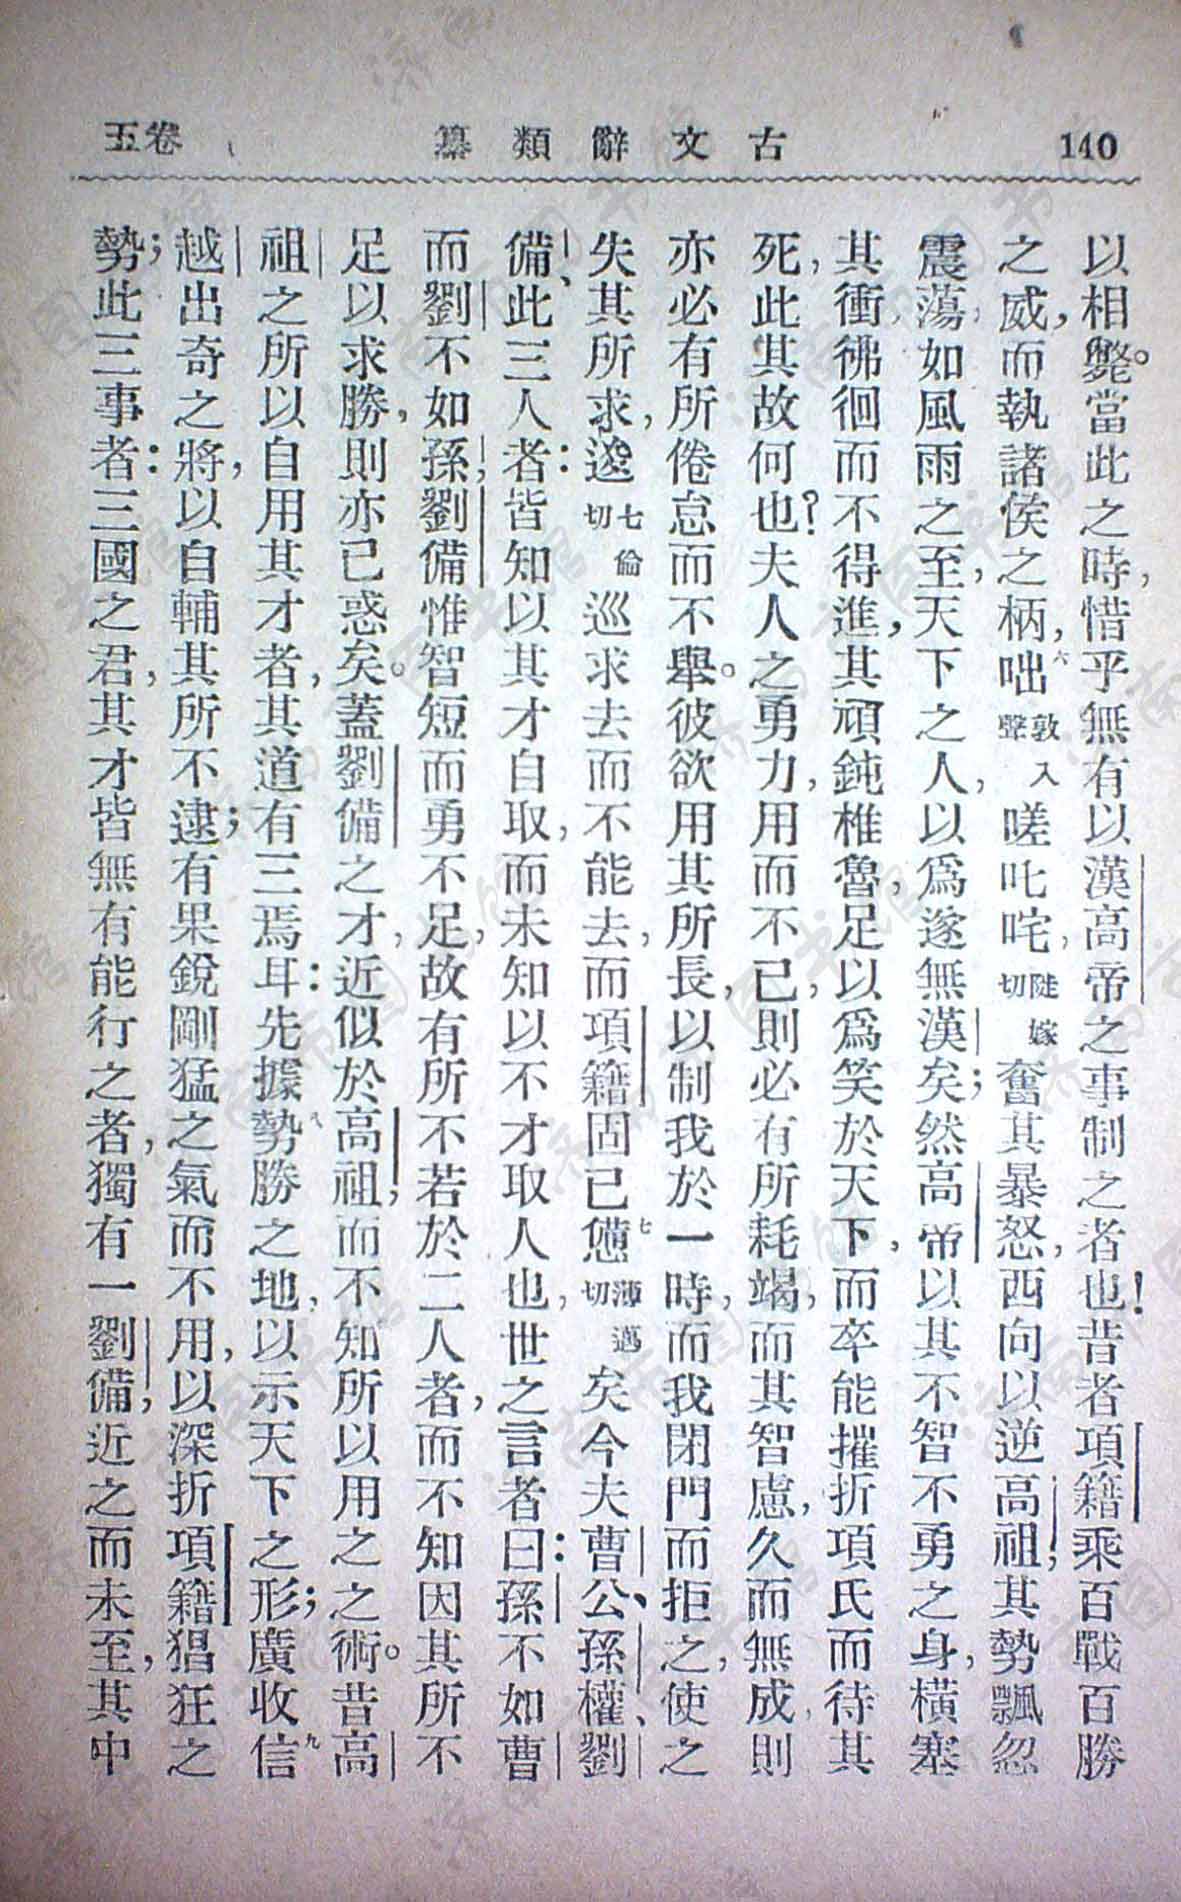 140
古文辭類纂
卷五
以相斃。當此之時，惜乎無有以漢高帝之事制之者也！昔者項籍乘百戰百勝
之威，而執諸侯之柄，咄六敦入聲嗟叱咤，陟嫁切奮其暴怒，西向以逆高祖，其勢飄忽
震蕩，如風雨之至，天下之人，以爲遂無漢矣；然高帝以其不智不勇之身，橫塞
其衝，彿徊而不得進，其頑鈍椎魯，足以爲笑於天下，而卒能摧折項氏而待其
死，此其故何也？夫人之勇力，用而不已，則必有所耗竭，而其智慮，久而無成，則
亦必有所倦怠而不舉。彼欲用其所長，以制我於一時，而我閉門而拒之，使之
失其所求，逡七倫切巡求去而不能去，而項籍固已憊七薄邁切矣今夫曹公、孫權、劉
備、此三人者：皆知以其才自取，而未知以不才取人也，世之言者曰：孫不如曹
而劉不如孫，劉備惟智短而勇不足，故有所不若於二人者，而不知因其所不
足以求勝，則亦已惑矣。蓋劉備之才，近似於高祖，而不知所以用之之術。昔高
祖之所以自用其才者，其道有三焉耳：先據勢八勝之地，以示天下之形；廣收信九
越出奇之將，以自輔其所不逮；有果銳剛猛之氣而不用，以深折項籍猖狂之
勢；此三事者：三國之君，其才皆無有能行之者，獨有一劉備，近之而未至，其中